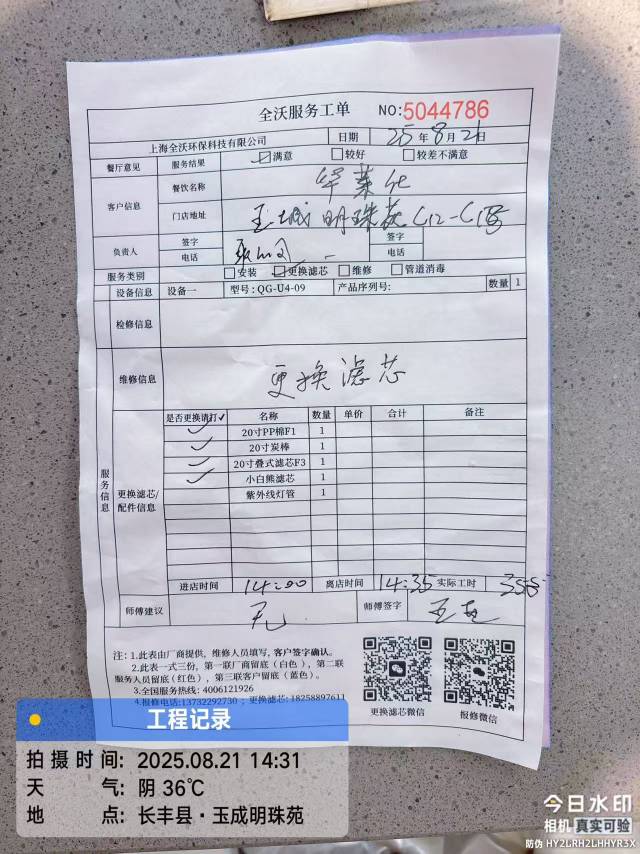 全沃服务工单 NO:5044786
上海全沃环保科技有限公司 日期 25年8月21日
餐厅意见 服务结果 ☑满意 □较好 □较差不满意
客户信息 餐饮名称 华莱仕
门店地址 玉城明珠苑C12-C1号
负责人 签字 签字
电话 电话
服务类别 □安装 ☑更换滤芯 □维修 □管道消毒
设备信息 设备一 型号:QG-U4-09 产品序列号: 数量 1
检修信息
服务信息
维修信息 更换滤芯
更换滤芯/配件信息
是否更换请打✓ 名称 数量 单价 合计 备注
✓ 20寸PP棉F1 1
✓ 20寸炭棒 1
✓ 20寸叠式滤芯F3 1
✓ 小白熊滤芯 1
紫外线灯管 1
进店时间 14:00 离店时间 14:35 实际工时
师傅建议 无 师傅签字
注:1.此表由厂商提供,维修人员填写,客户签字确认。
2.此表一式三份,第一联厂商留底(白色),第二联
服务人员留底(红色),第三联客户留底(蓝色)。
3.全国服务热线:4006121926
4.报修电话:13732292730;更换滤芯:18258897611
更换滤芯微信 报修微信
工程记录
拍摄时间:2025.08.21 14:31
天气:阴 36℃
地点:长丰县·玉成明珠苑
今日水印
相机 真实可验
防伪 HY2LRH2LHHYR3X